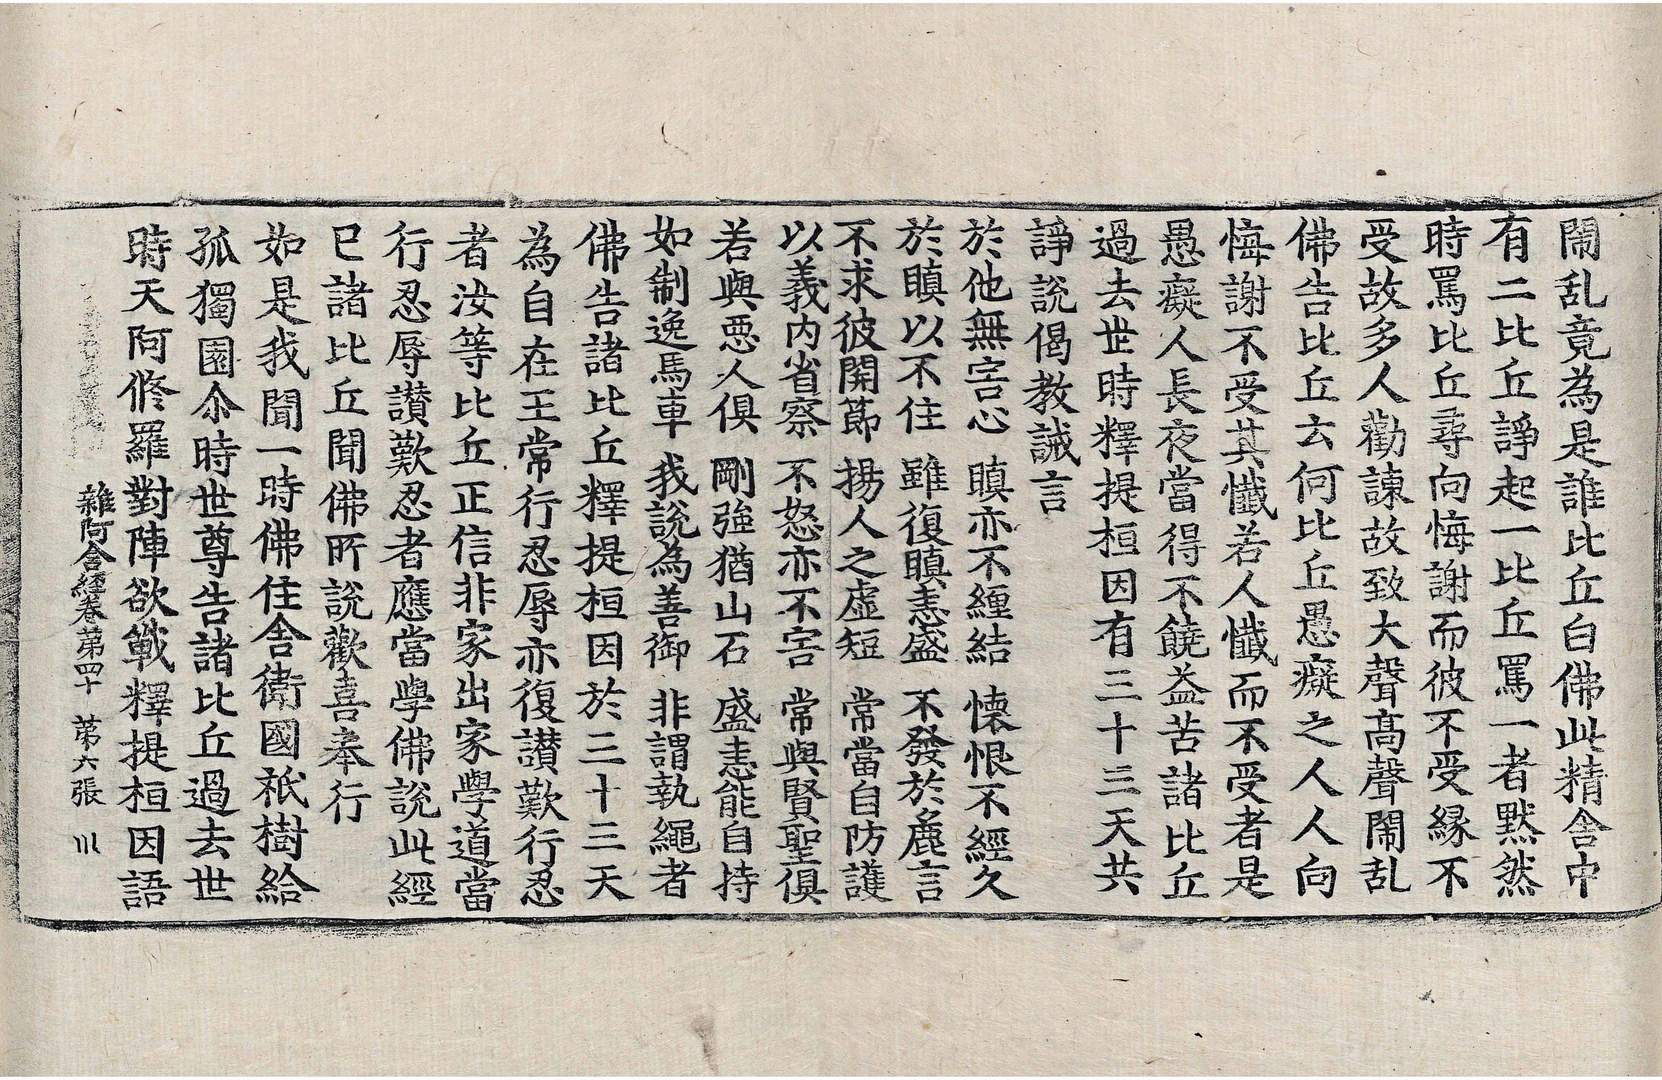 閙乱竟為是誰比丘白佛此精舍中
有二比丘諍起一比丘罵一者黙然
時罵比丘尋向悔謝而彼不受緣不
受故多人勸諫故致大聲髙聲閙乱
佛告比丘云何比丘愚癡之人人向
悔謝不受其懺若人懺而不受者是
愚癡人長夜當得不饒益苦諸比丘
過去世時釋提桓因有三十三天共
諍說偈教誡言
於他無害心　瞋亦不纏結　懐恨不經久
於瞋以不住　雖復瞋恚盛　不發於麁言
不求彼開節　揚人之虛短　常當自防護
以義內省察　不怒亦不害　常與賢聖俱
若與惡人俱　剛強猶山石　盛恚能自持
如制逸馬車　我說為善御　非謂執繩者
佛告諸比丘釋提桓因於三十三天
為自在王常行忍辱亦復讃歎行忍
者汝等比丘正信非家出家學道當
行忍辱讃歎忍者應當學佛說此經
已諸比丘聞佛所說歡喜奉行
如是我聞一時佛住舍衛國祇樹給
孤獨園尒時世尊告諸比丘過去世
時天阿修羅對陣欲戰釋提桓因語
雜阿含經卷第四十　第六張　川